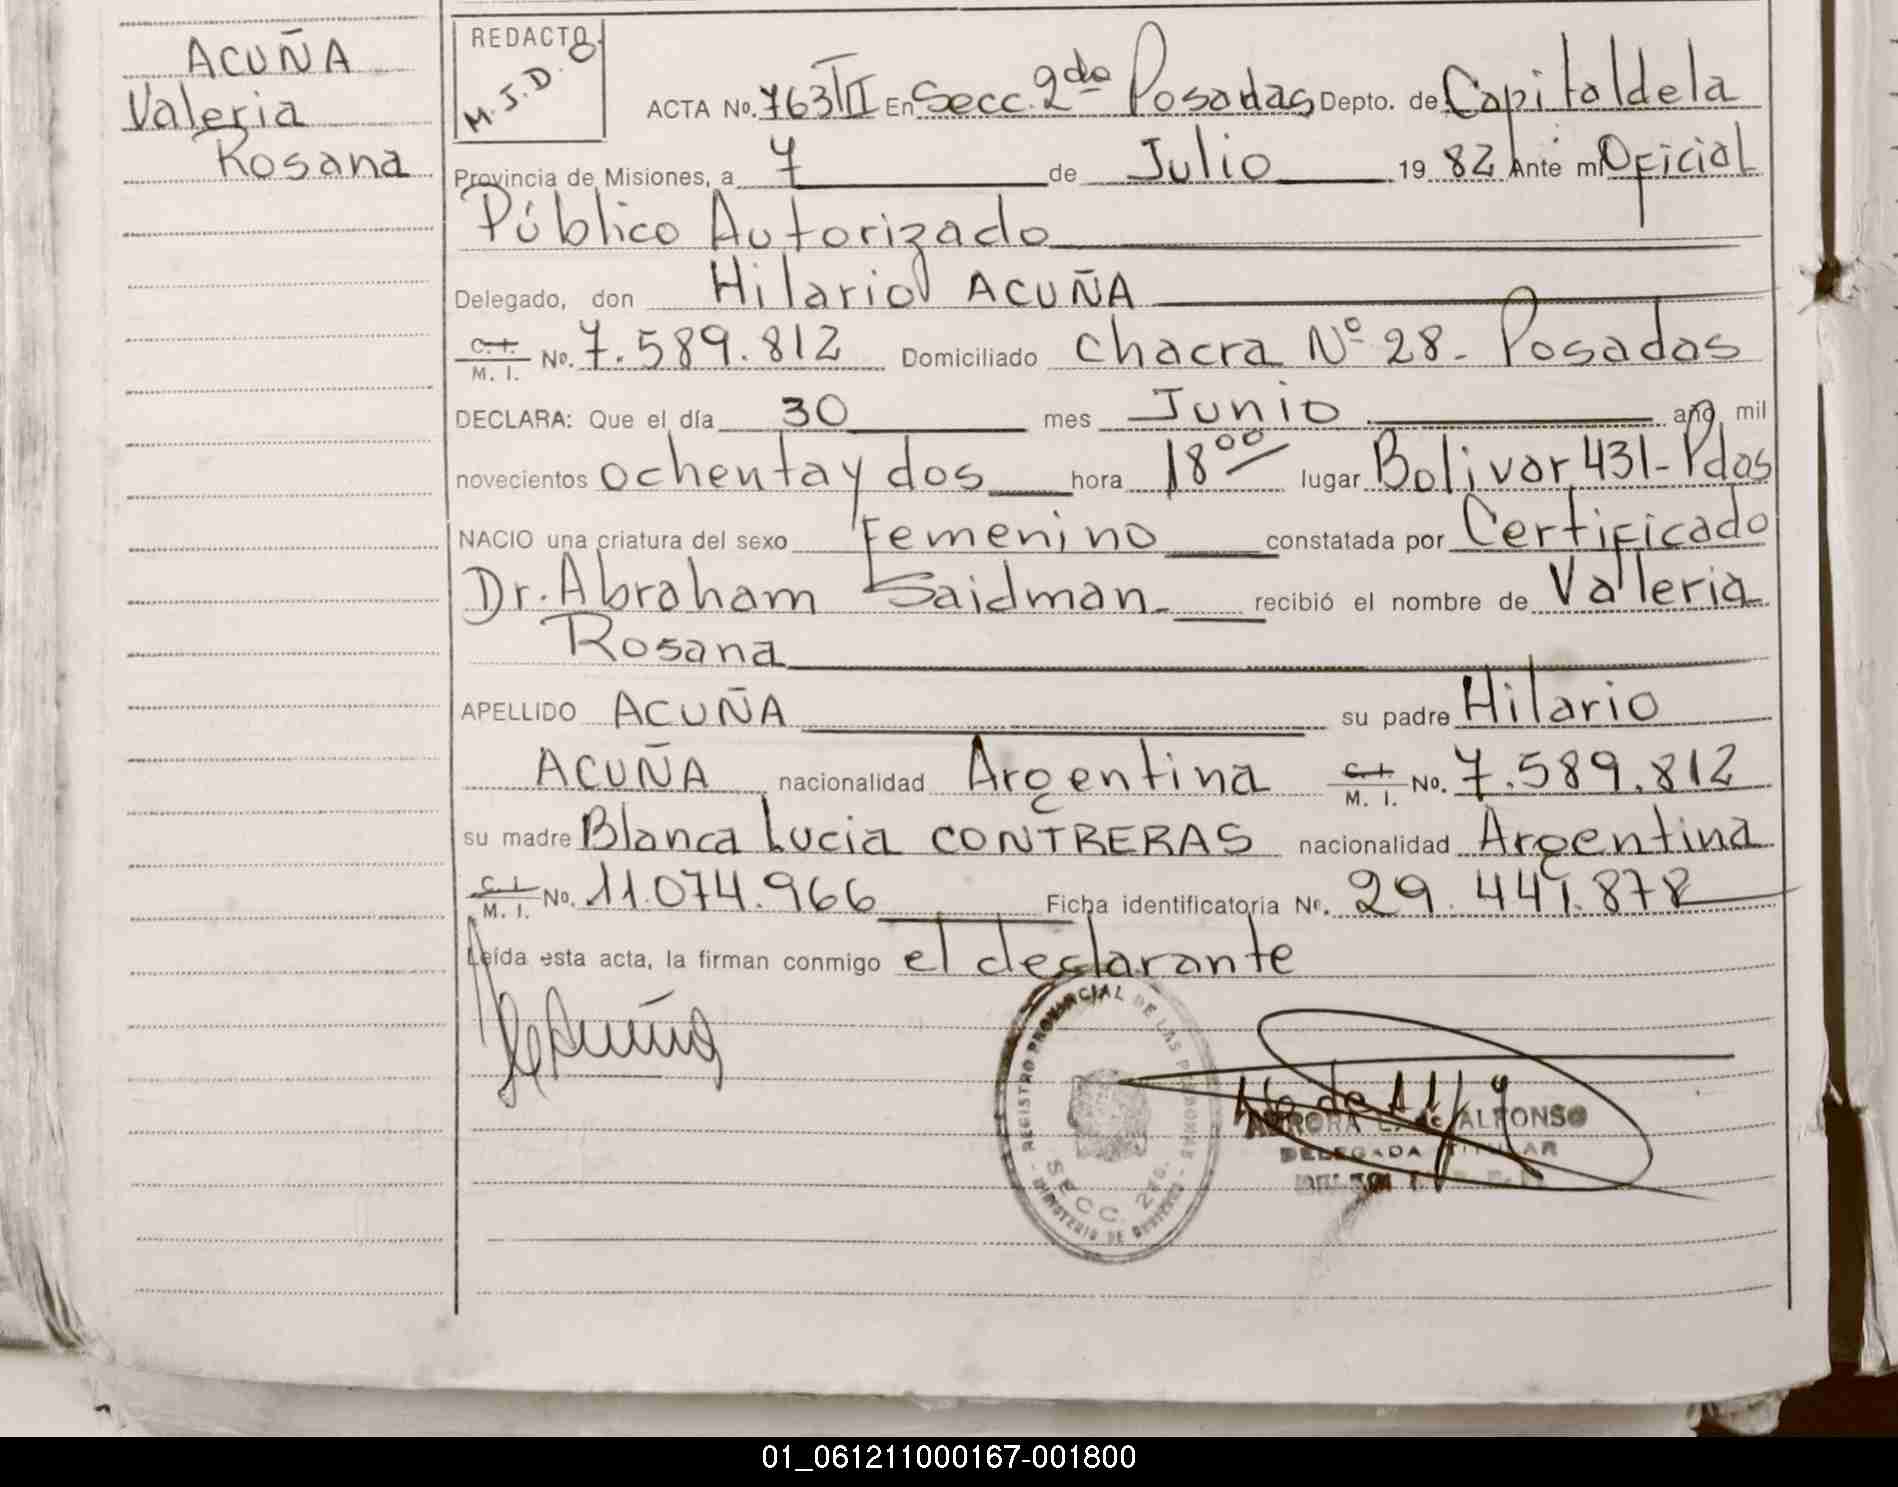 ACUÑA
Valeria
Rosana
REDACTO
M.J.D.O.
ACTA No. 763 TII En Secc. 2da Posadas Depto. de Capital de la
Provincia de Misiones, a 7 de Julio 19 82 Ante mi Oficial
Público Autorizado
Delegado, don Hilario ACUÑA
C. I. M. I. No. 7.589.812 Domiciliado Chacra Nº 28 - Posadas
DECLARA: Que el día 30 mes Junio año mil
novecientos ochenta y dos hora 18 00 lugar Bolivar 431 - Pdas
NACIO una criatura del sexo Femenino constatada por Certificado
Dr. Abraham Saidman - recibió el nombre de Valeria
Rosana
APELLIDO ACUÑA su padre Hilario
ACUÑA nacionalidad Argentina C. I. M. I. No. 7.589.812
su madre Blanca Lucia CONTRERAS nacionalidad Argentina
C. I. M. I. No. 11.074.966 Ficha identificatoria Nº. 29.441.878
Leída esta acta, la firman conmigo el declarante
REGISTRO PROVINCIAL DE LAS PERSONAS - MINISTERIO DE GOBIERNO -
SECC. 2da.
AURORA de ALFONSO
DELEGADA TITULAR
01_061211000167-001800